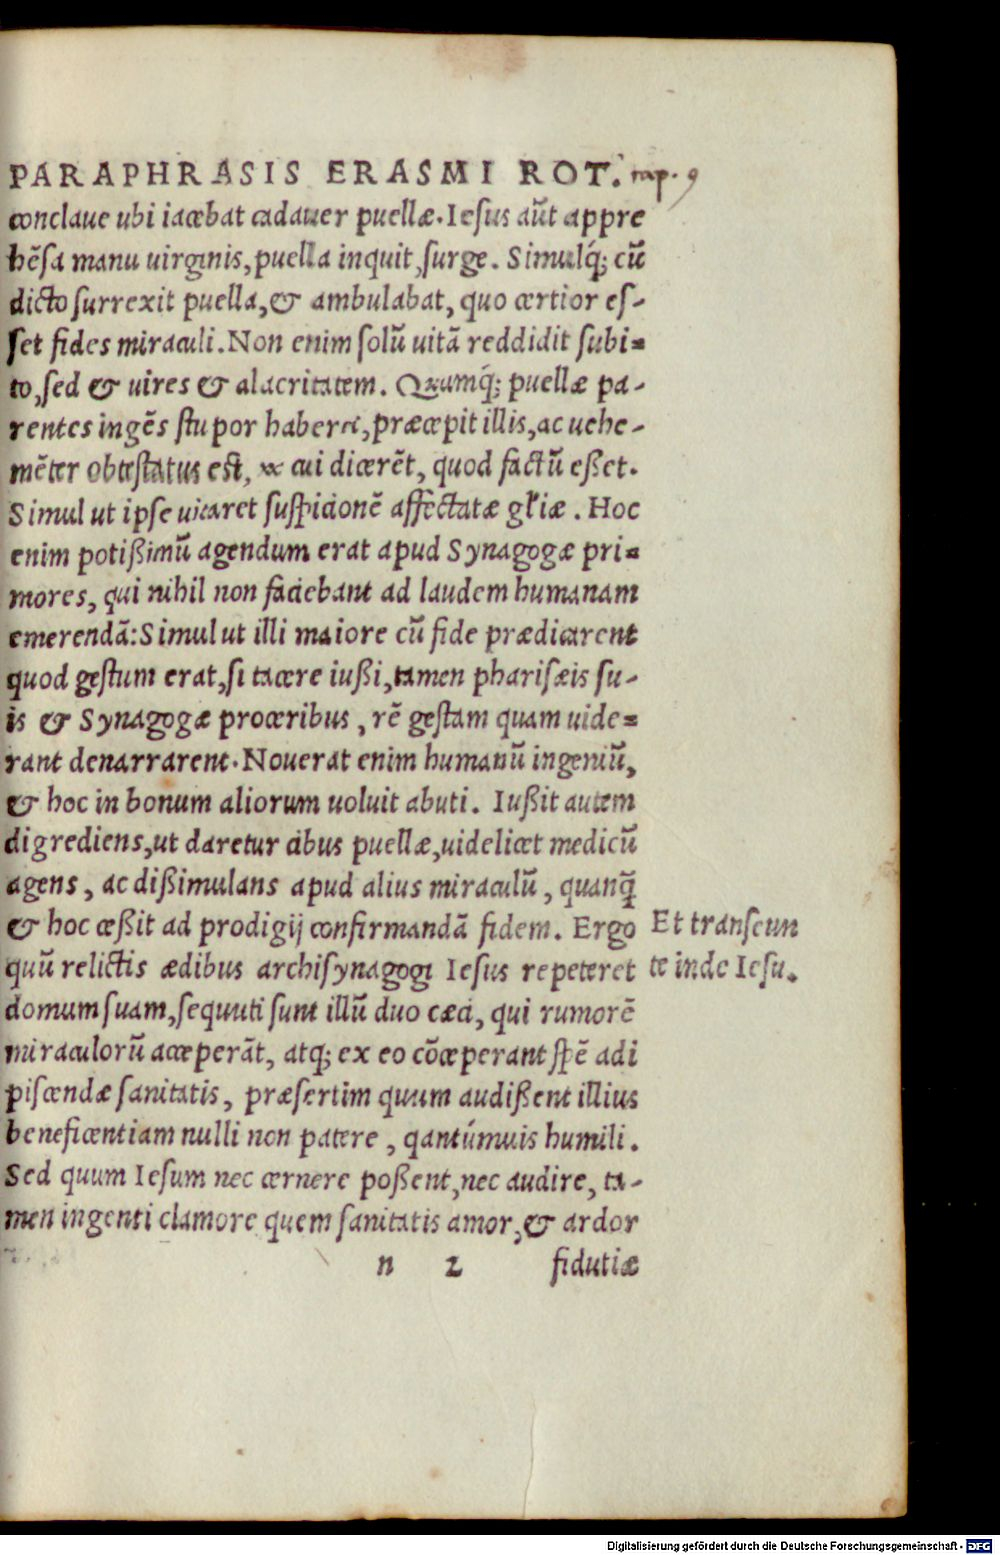 PARAPHRASIS ERASMI ROT. cap. 9
conclaue ubi iacebat cadauer puellæ. Iesus aũt appre
hẽsa manu uirginis, puella inquit, surge. Simulq́; cũ
dicto surrexit puella, & ambulabat, quo certior es-
set fides miraculi. Non enim solũ uitã reddidit subi-
to, sed & uires & alacritatem. Quumq́; puellæ pa-
rentes ingẽs stupor haberet, præcepit illis, ac uehe-
mẽter obtestatus est, ne cui dicerẽt, quod factũ eßet.
Simul ut ipse uitaret suspicionẽ affectatæ gl'iæ. Hoc
enim potißimũ agendum erat apud Synagogæ pri-
mores, qui nihil non faciebant ad laudem humanam
emerendã: Simul ut illi maiore cũ fide prædicarent
quod gestum erat, si tacere iußi, tamen pharisæis su-
is & Synagogæ proceribus, rẽ gestam quam uide-
rant denarrarent. Nouerat enim humanũ ingeniũ,
& hoc in bonum aliorum uoluit abuti. Iußit autem
digrediens, ut daretur cibus puellæ, uidelicet medicũ
agens, ac dißimulans apud alius miraculũ, quanq̃
& hoc ceßit ad prodigij confirmandã fidem. Ergo
Et transeun
quũ relictis ædibus archisynagogi Iesus repeteret
te inde Iesu.
domum suam, sequuti sunt illũ duo cæci, qui rumorẽ
miraculorũ acceperãt, atq; ex eo cõceperant spẽ adi
piscendæ sanitatis, præsertim quum audißent illius
beneficentiam nulli non patere, qantúmuis humili.
Sed quum Iesum nec cernere poßent, nec audire, ta-
men ingenti clamore quem sanitatis amor, & ardor
n 2 fidutiæ
Digitalisierung gefördert durch die Deutsche Forschungsgemeinschaft - DFG